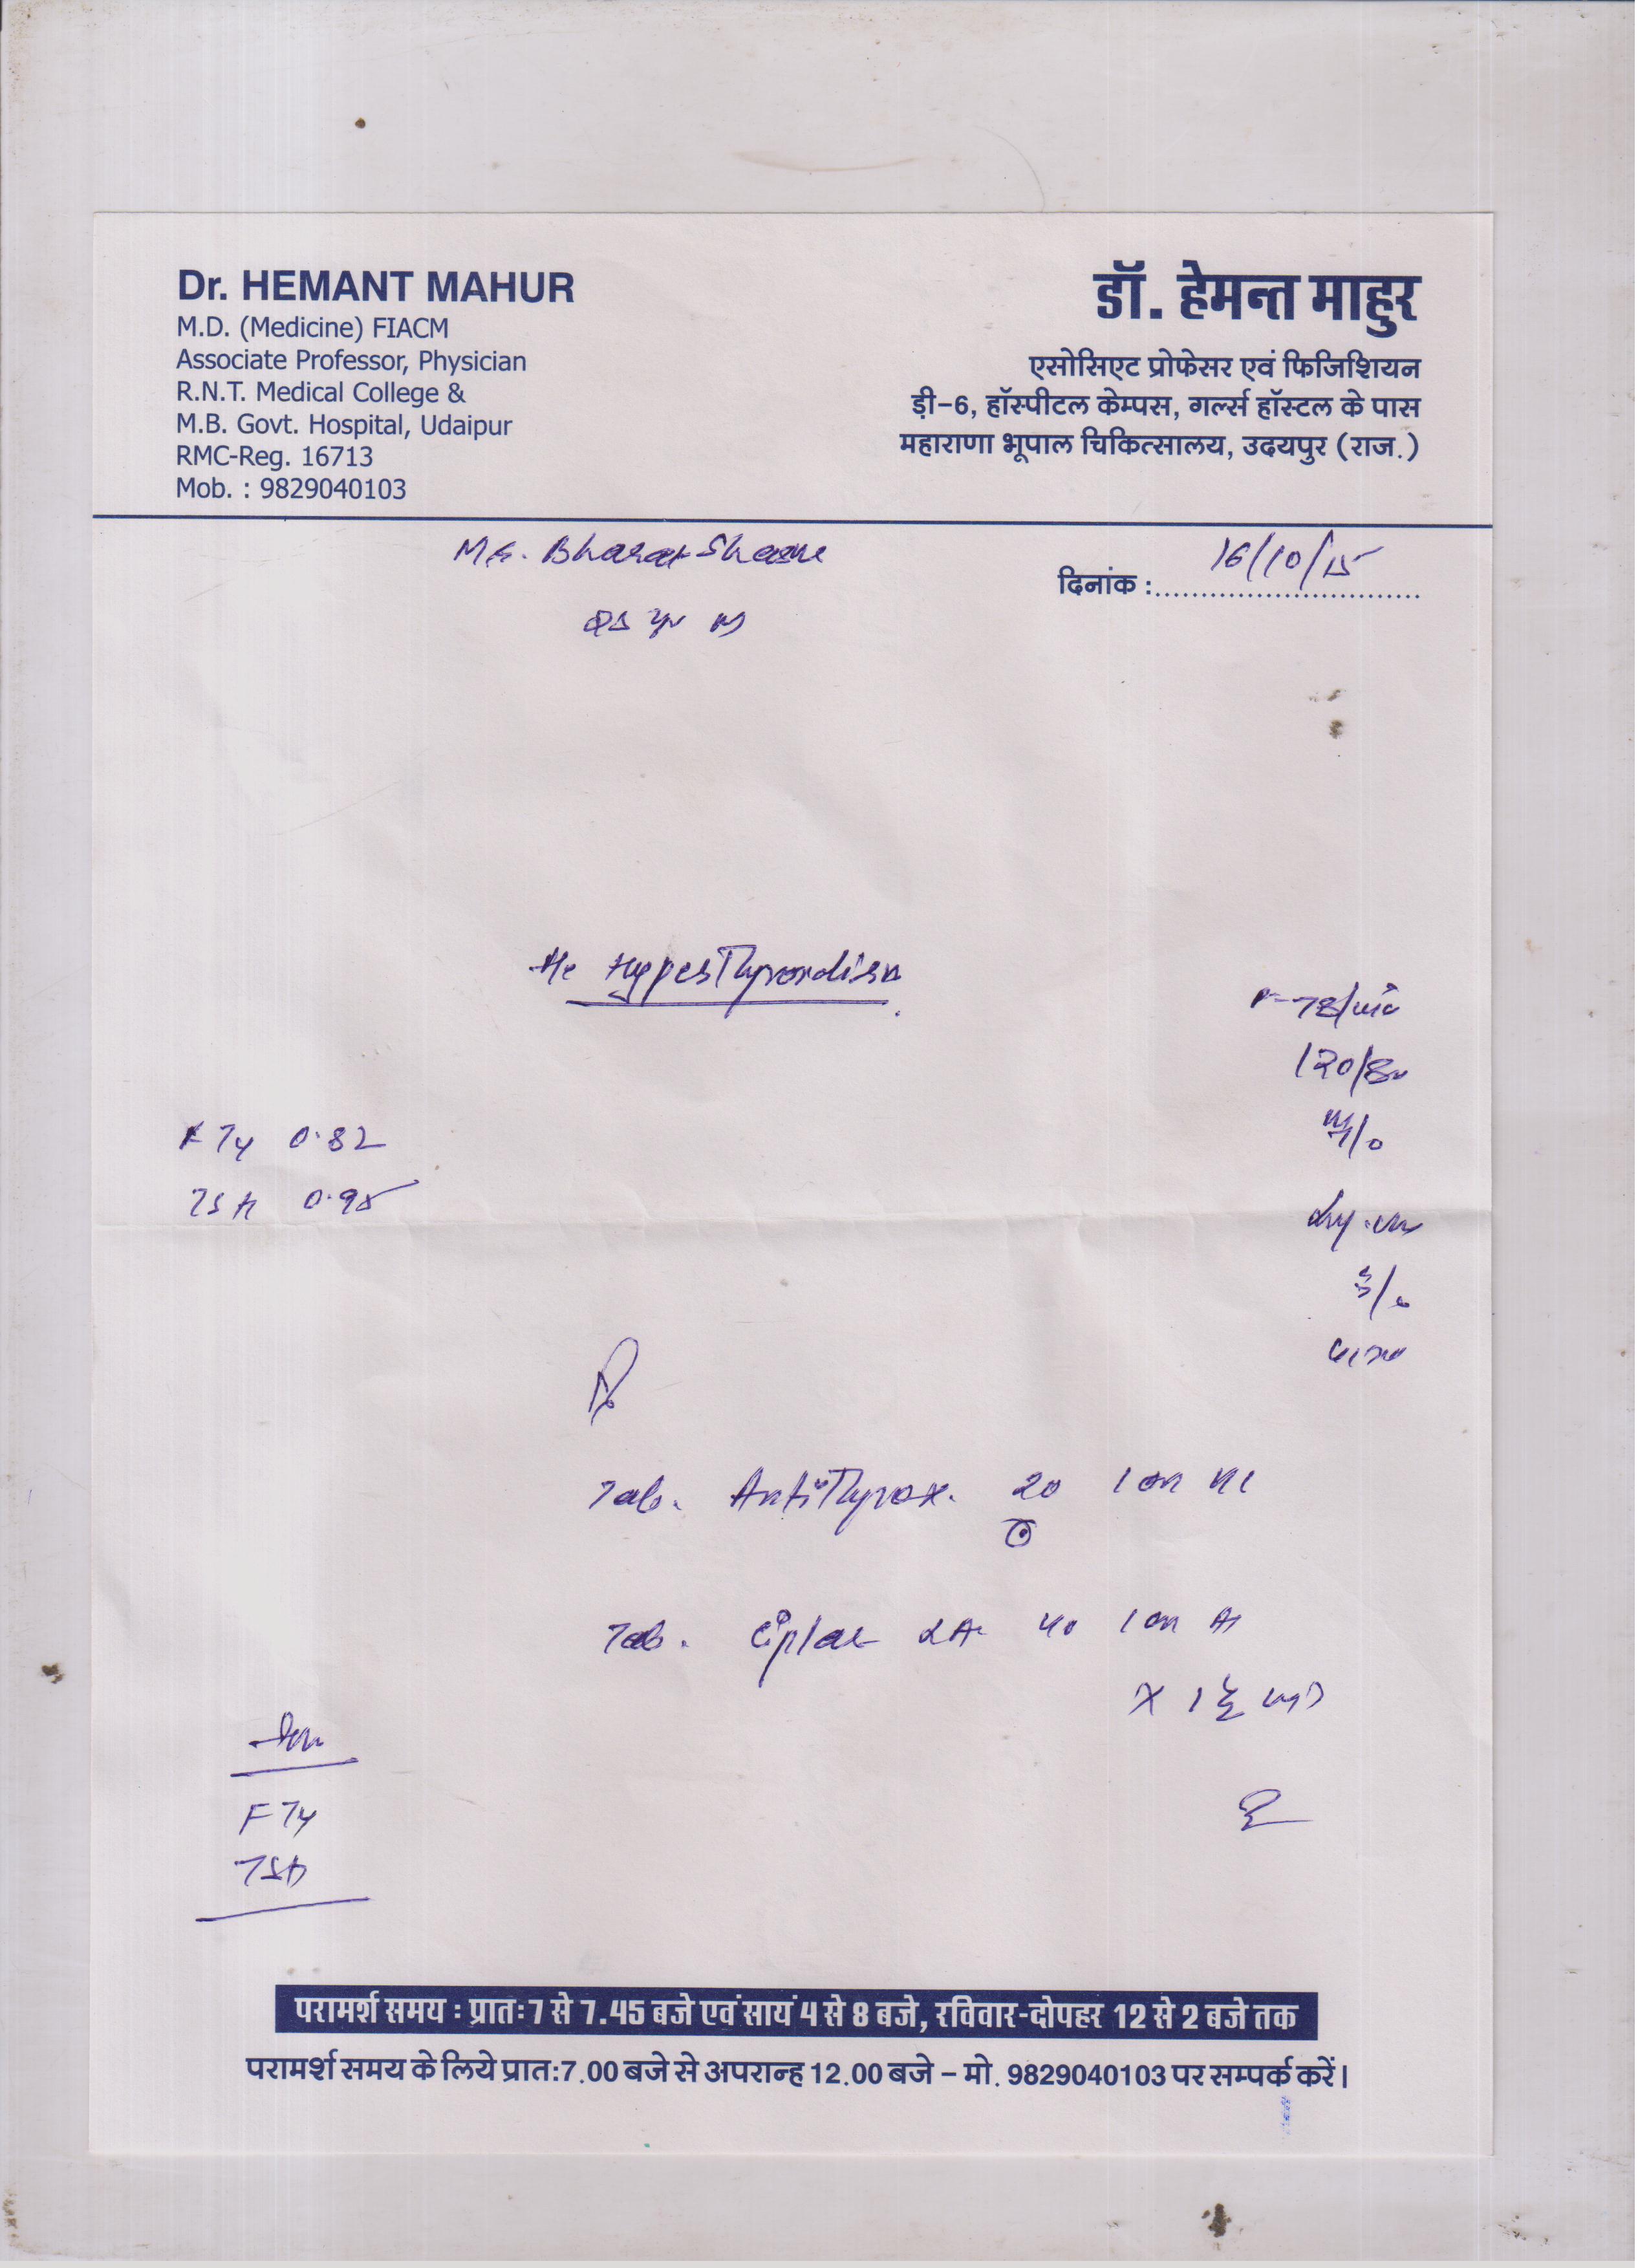 Dr. HEMANT MAHUR
M.D. (Medicine) FIACM
Associate Professor, Physician
R.N.T. Medical College &
M.B. Govt. Hospital, Udaipur
RMC-Reg. 16713
Mob. : 9829040103
डॉ. हेमन्त माहुर
एसोसिएट प्रोफेसर एवं फिजिशियन
ड़ी-6, हॉस्पीटल केम्पस, गर्ल्स हॉस्टल के पास
महाराणा भूपाल चिकित्सालय, उदयपुर (राज.)
Mr. Bharat
दिनांक : 16/10/15
Hyperthyroidism
P-78/min
120/80
FT4 0.82
TSH 0.95
Rx
Tab. Antithyrox. 20 1 on
Tab. Ciplar LA 40 1 on
x 1 1/2
FT4
TSH
परामर्श समय : प्रातः 7 से 7.45 बजे एवं सायं 4 से 8 बजे, रविवार-दोपहर 12 से 2 बजे तक
परामर्श समय के लिये प्रात:7.00 बजे से अपरान्ह 12.00 बजे – मो. 9829040103 पर सम्पर्क करें।